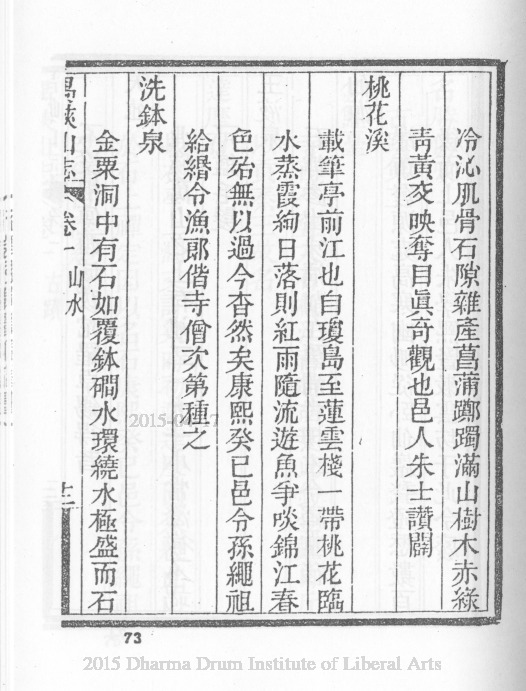 冷沁肌骨石隙雜產菖蒲躑躅滿山樹木赤綠
青黃交映奪目眞奇觀也邑人朱士讚闢
桃花溪
載筆亭前江也自瓊島至蓮雲棧一帶桃花臨
水蒸霞絢日落則紅雨隨流遊魚爭啖錦江春
色殆無以過今杳然矣康熙癸巳邑令孫繩祖
給緡令漁郞偕寺僧次第種之
洗鉢泉
金粟洞中有石如覆鉢磵水環繞水極盛而石
山志 卷一 山水 十二
73
2015-04-17
2015 Dharma Drum Institute of Liberal Arts